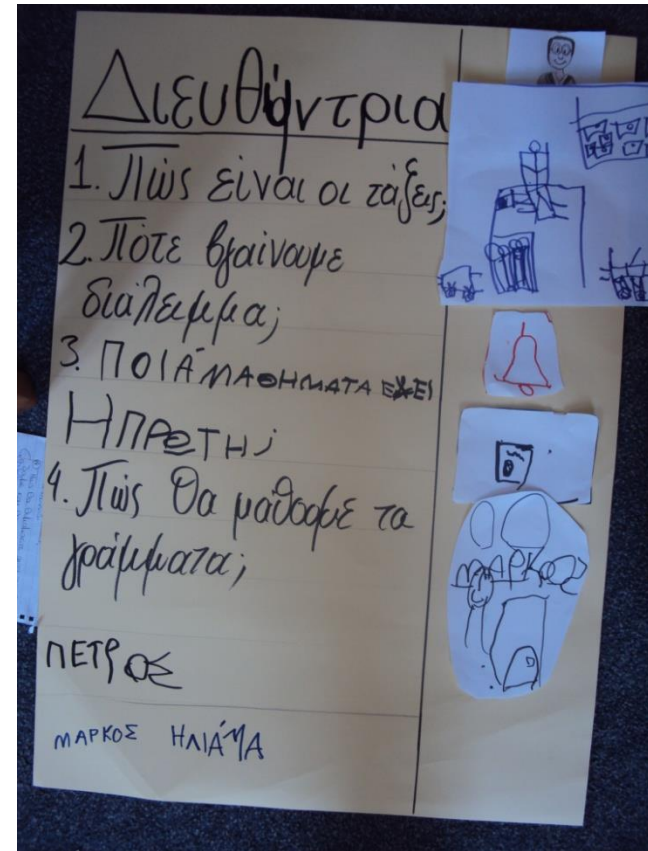 Διευθύντρια
1. Πώς είναι οι τάξεις;
2. Πότε βγαίνουμε
διάλειμμα;
3. ΠΟΙΑ ΜΑΘΗΜΑΤΑ ΕΧΕΙ
Η ΠΡΩΤΗ;
4. Πώς θα μάθουμε τα
γράμματα;
ΠΕΤΡΟΣ
ΜΑΡΚΟΣ ΗΛΙΑΝΑ
ΜΑΡΚΟΣ